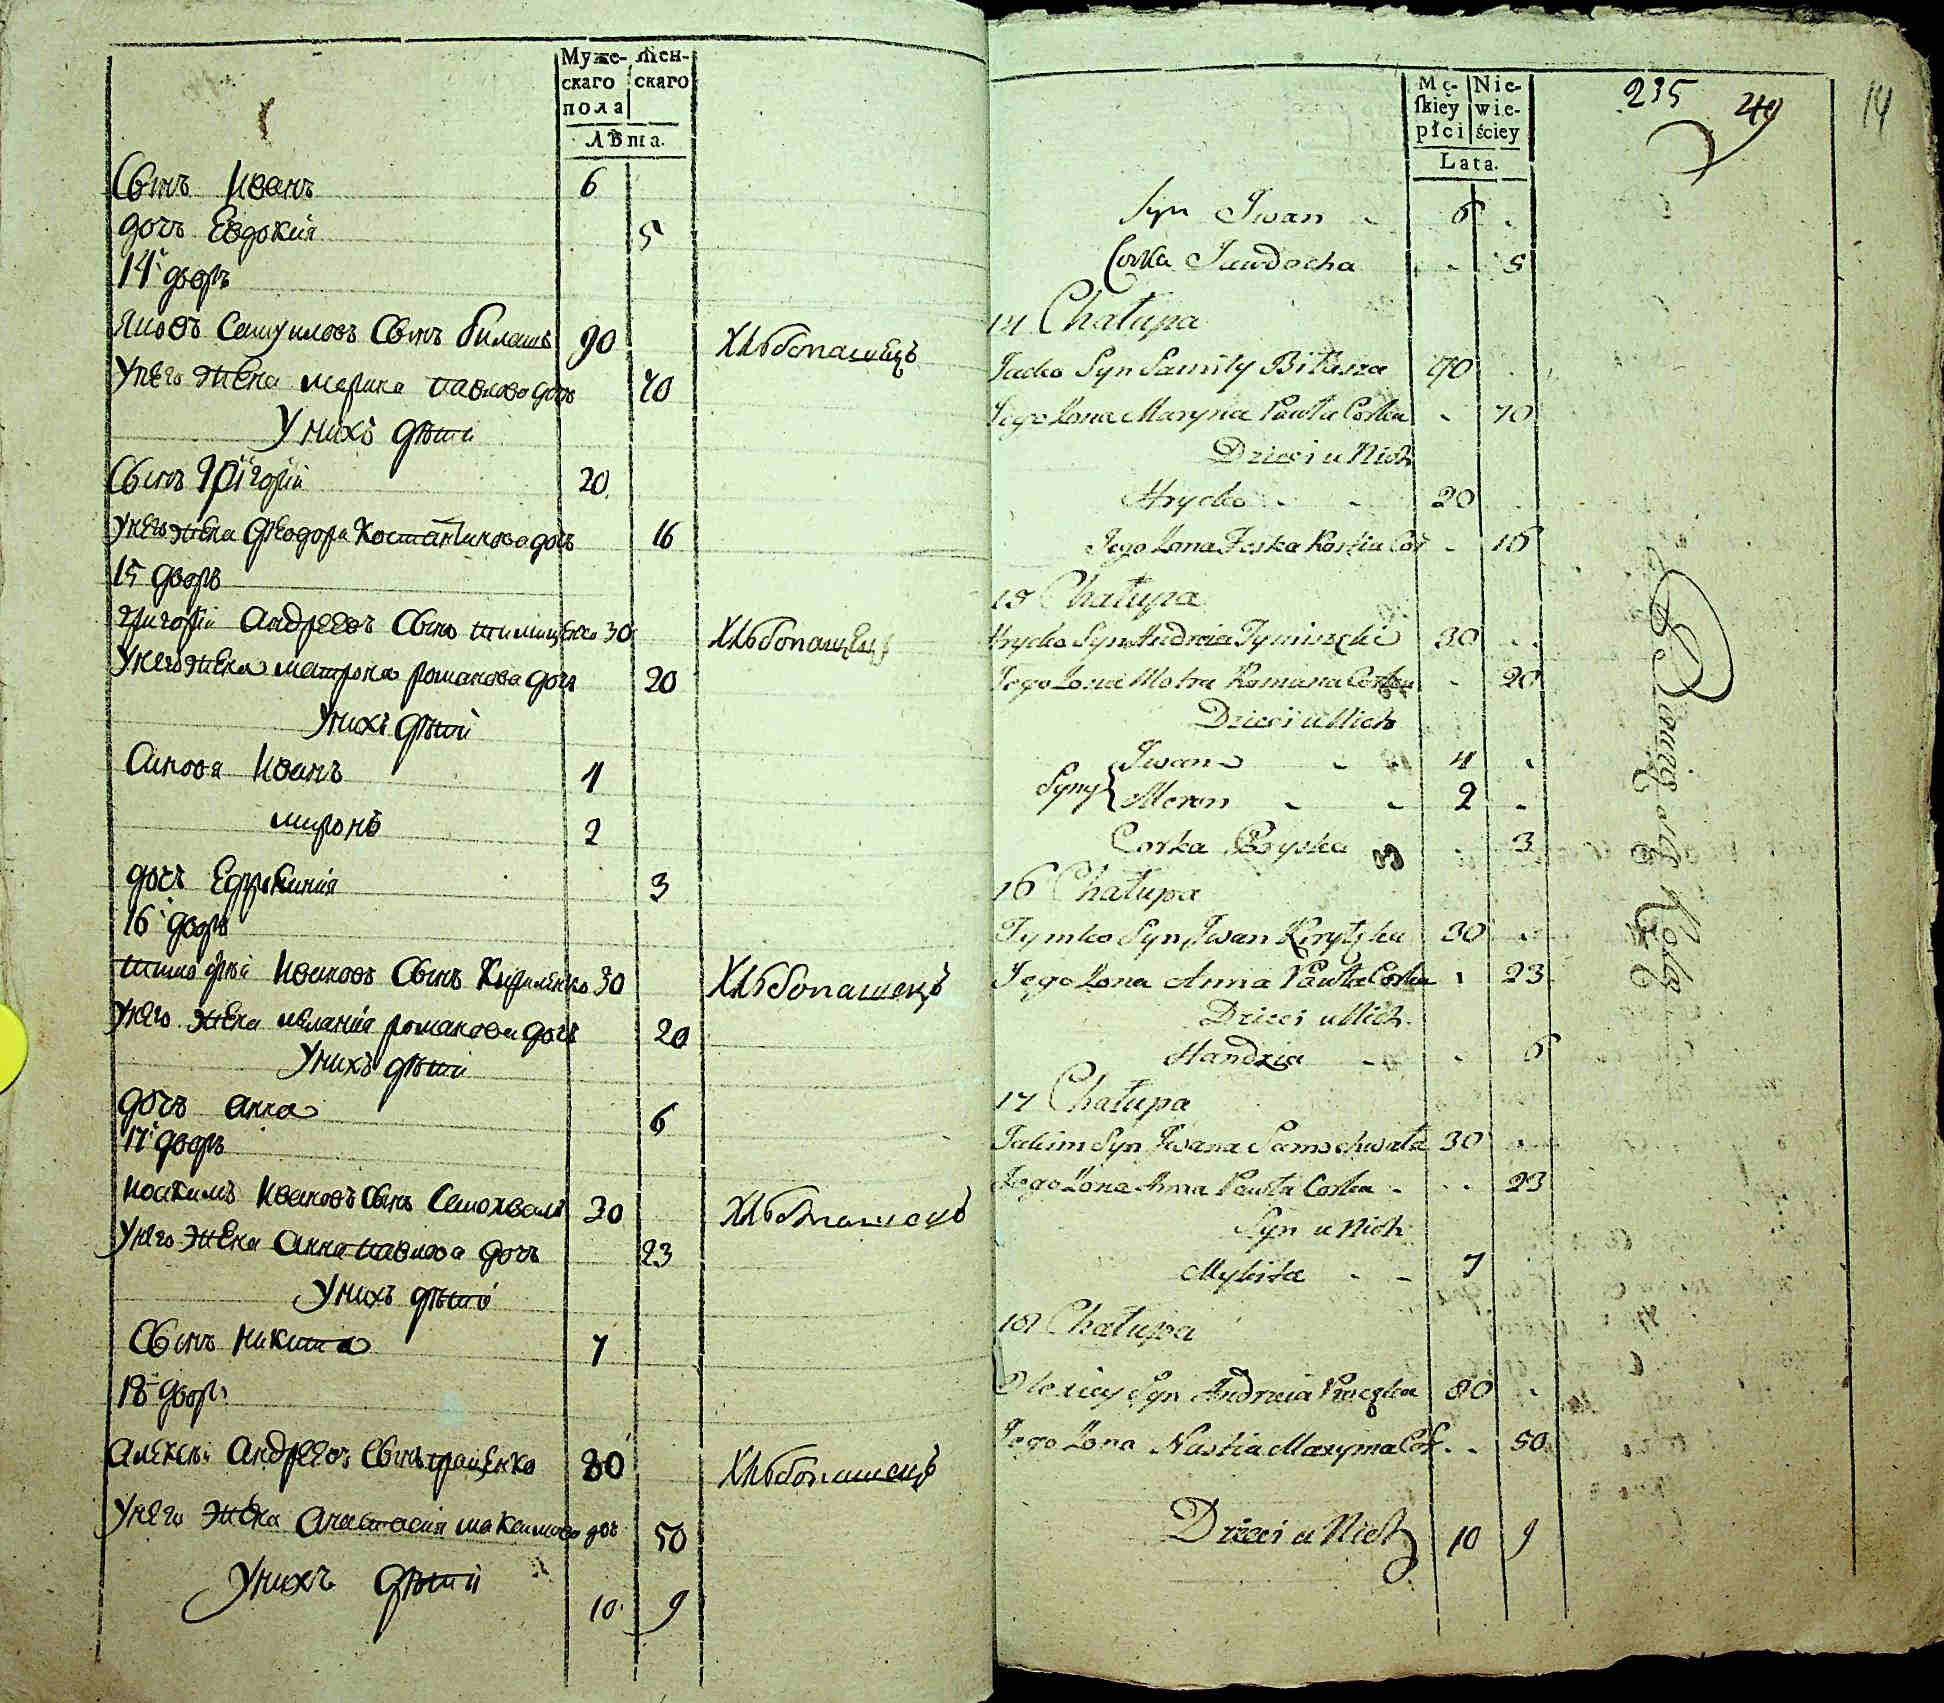 Муже-
скаго
пола
Жен-
скаго
Лѣта.
Сынъ Иванъ 6
дочъ Евдокия 5
14й дворъ
Яковъ Самуиловъ Сынъ билашъ 90 хлѣбопашецъ
У него жена марина павлова дочъ 70
У нихъ дѣти
Сынъ Григорій 20
У него жена Феодора Костантинова дочъ 16
15 дворъ
Григорій Андреевъ Сынъ тимищенко 30 хлѣбопашецъ
У него жена матрона романова дочъ 20
У нихъ дѣти
Синовя Иванъ 4
миронъ 2
дочъ 3
16й дворъ
тимофѣй Ивановъ Сынъ Кириленко 30 хлѣбопашецъ
У него жена мелания романова дочъ 20
У нихъ дѣти
дочъ анна 6
17й дворъ
Иоакимъ Ивановъ Сынъ Самохвалъ 30 хлѣбопашецъ
У него жена Анна павлова дочъ 23
У нихъ дѣти
Сынъ никита 7
18й дворъ
Алексѣй Андреевъ Сынъ 80 хлѣбопашецъ
У него жена Анастасия максимова дочъ 50
У нихъ дѣти
10 9
Mę-
skiey
płci
Nie-
wie-
ściey
Lata.
235
14
Syn Iwan 6
Corka Jawdocha 5
14 Chałupa
Jacko Syn Samiły Biłasza 90
Jego Zona Maryna Pawła Corka 70
Dzieci u Nich
Hrycko 20
Jego Zona Feska Kostia Cor 16
15 Chałupa
Hrycko Syn Andreia Tymiszcki 30
Jego Zona Motra Romana Corka 20
Dzieci u Nich
Iwan 4
Syny Meron 2
Corka Pryska 3
16 Chałupa
Tymko Syn Iwan 30
Jego Zona Anna Pawła Corka 23
Dzieci u Nich
Handzia 6
17 Chałupa
Jakim Syn Iwana Samochwała 30
Jego Zona Anna Pawła Corka 23
Syn u Nich
Mykita 7
18 Chałupa
Olexiey Syn Andreia 80
Jego Zona Nastia Maxyma Cor 50
Dzieci u Nich 10 9